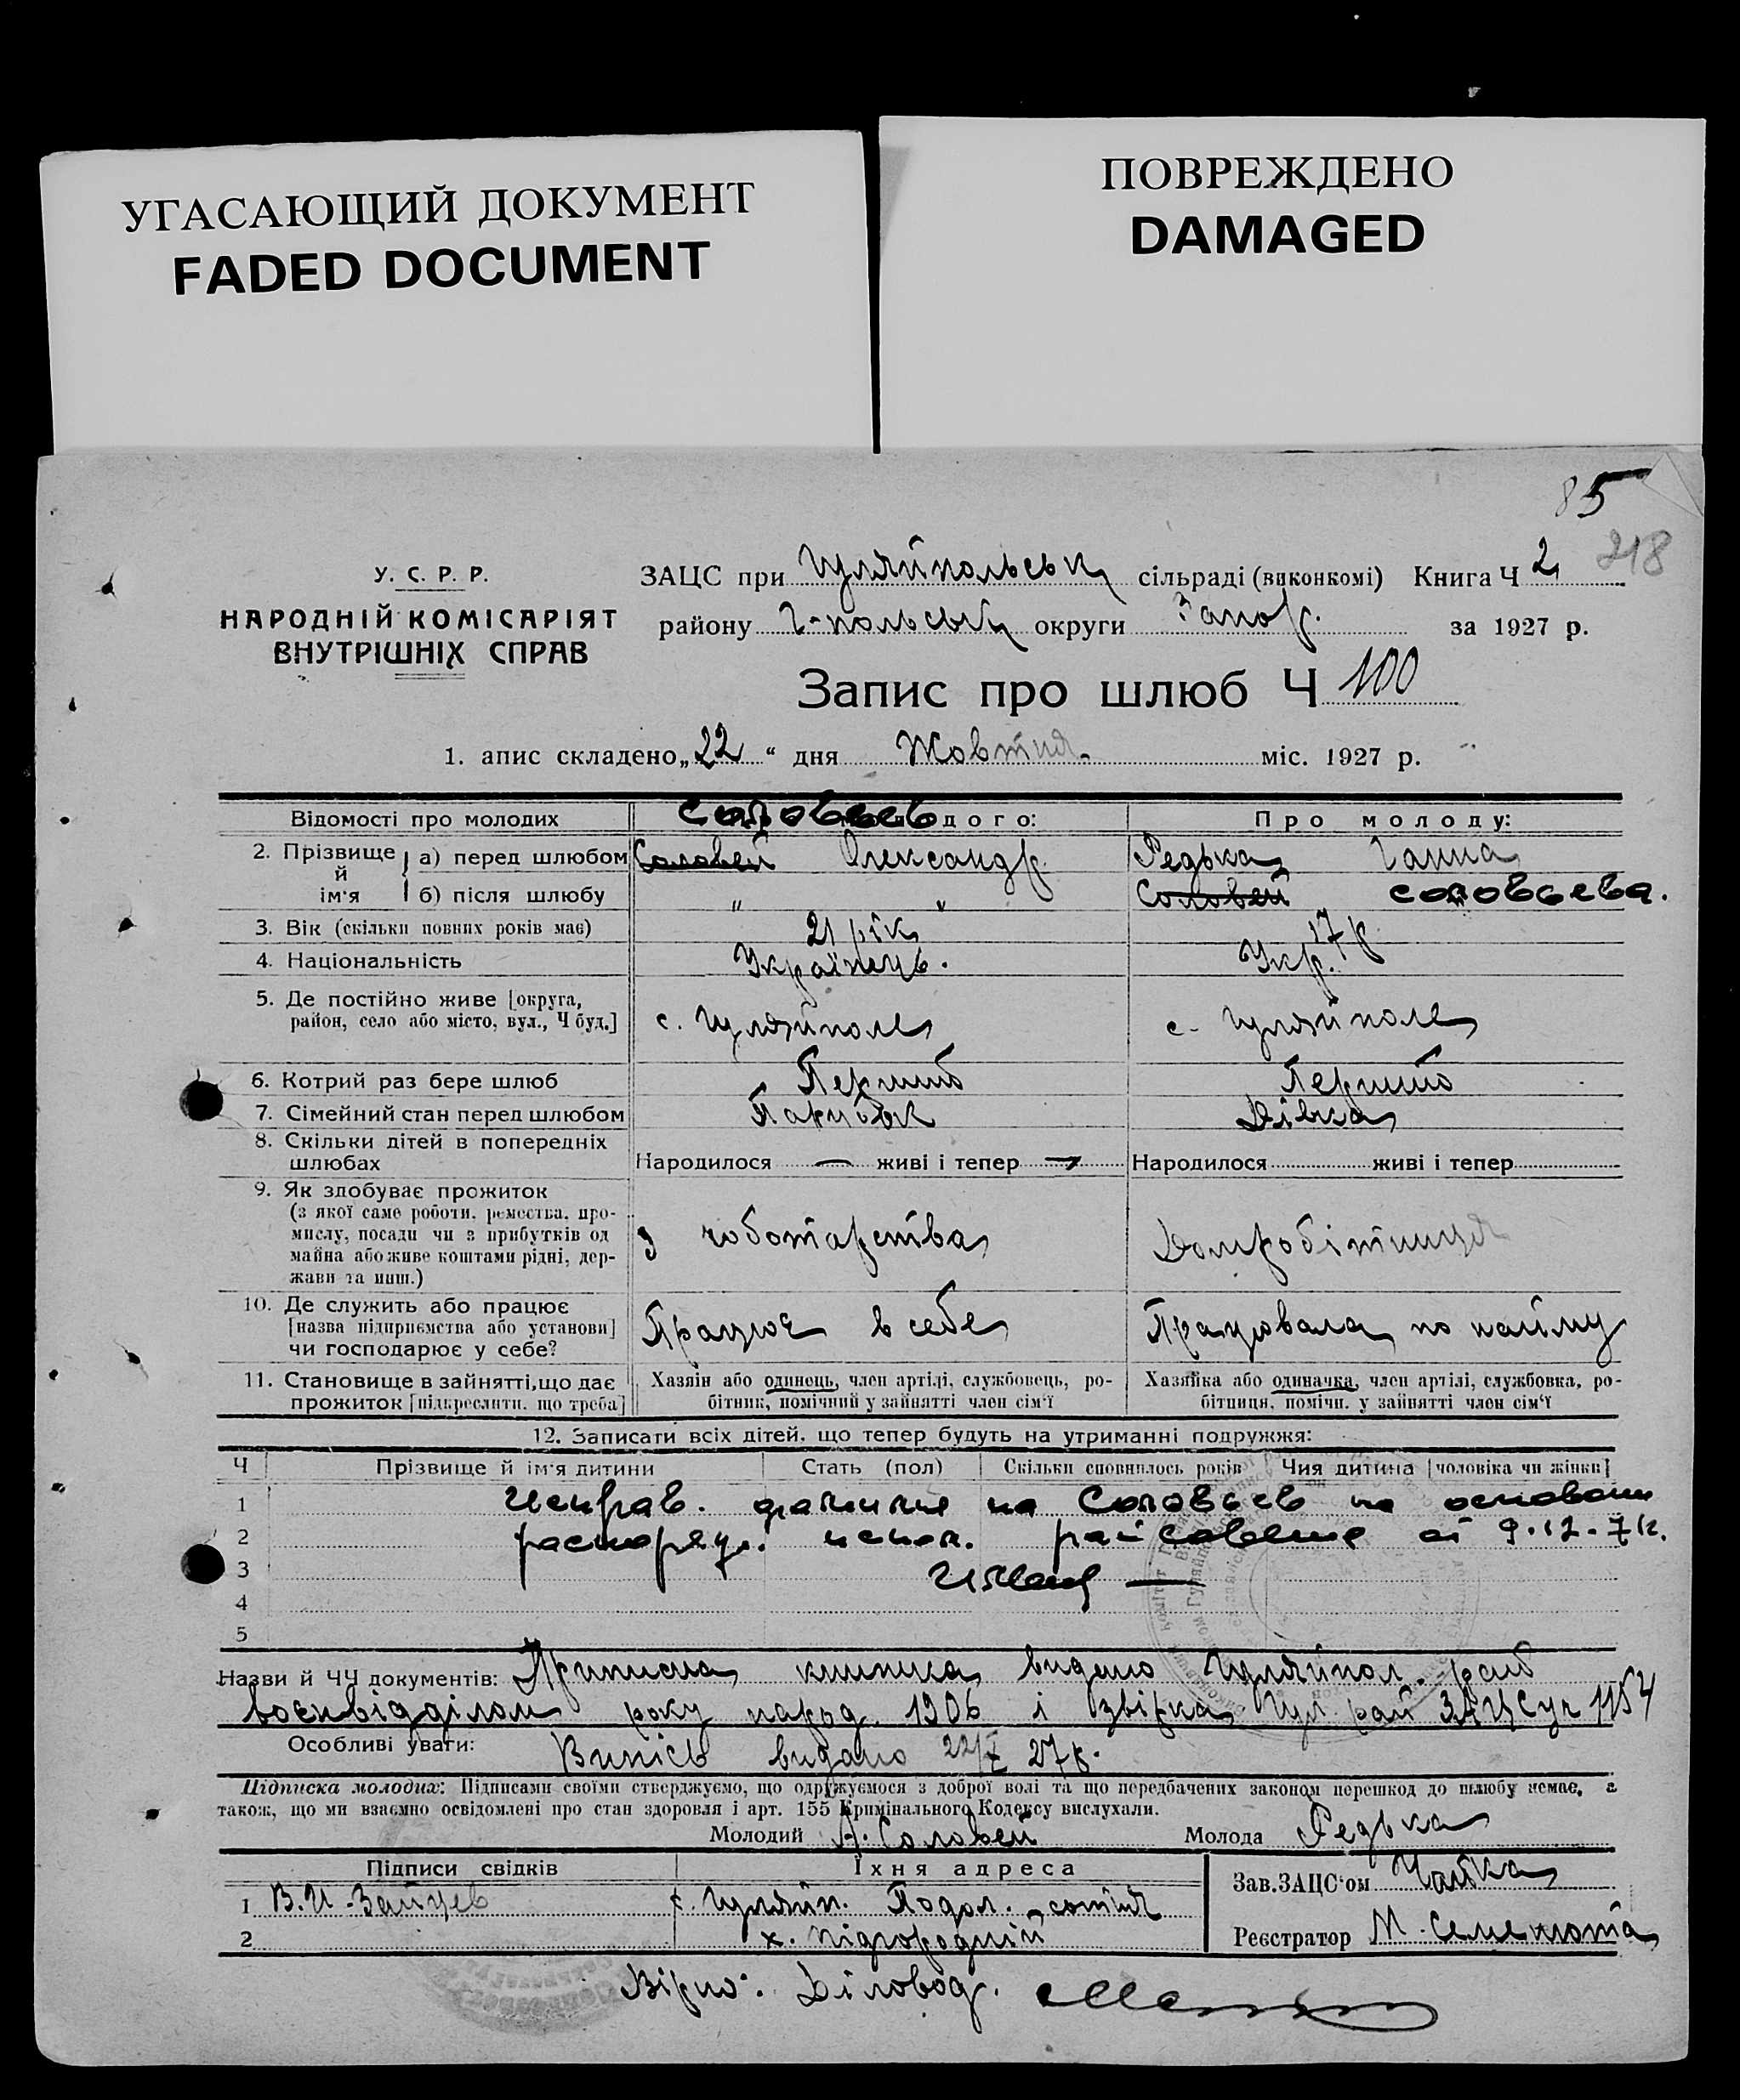 УГАСАЮЩИЙ ДОКУМЕНТ
FADED DOCUMENT
ПОВРЕЖДЕНО
DAMAGED
85
218
У. С. Р. Р.
НАРОДНІЙ КОМІСАРІЯТ
ВНУТРІШНІХ СПРАВ
ЗАЦС при Гуляйпольськ сільраді (виконкомі) Книга Ч 2
району Г-польськ округи Запор. за 1927 р.
Запис про шлюб Ч 100
1. апис складено „22“ дня Жовтня міс. 1927 р.
Відомості про молодих Соловьев дого: Про молоду:
2. Прізвище й ім'я а) перед шлюбом Соловей Олександр. Редька Ганна
б) після шлюбу " " Соловей Соловьева.
3. Вік (скільки повних років має) 21 рік 17 р
4. Національність Українець. Укр.
5. Де постійно живе [округа, район, село або місто, вул., Ч буд.] с. Гуляйполе с. Гуляйполе
6. Котрий раз бере шлюб Перший Перший
7. Сімейний стан перед шлюбом Парубок Дівка
8. Скільки дітей в попередніх шлюбах Народилося — живі і тепер — Народилося живі і тепер
9. Як здобуває прожиток
(з якої саме роботи, ремества, про-
мислу, посади чи з прибутків од
майна або живе коштами рідні, дер-
жави та инш.) З чоботарства Домробітниця
10. Де служить або працює
[назва підприємства або установи]
чи господарює у себе? Працює в себе Працювала по найму
11. Становище в зайнятті, що дає
прожиток [підкреслити, що треба]
Хазяїн або одинець, член артілі, службовець, ро-
бітник, помічний у зайнятті член сім'ї
Хазяйка або одиначка, член артілі, службовка, ро-
бітниця, помічн. у зайнятті член сім'ї
12. Записати всіх дітей, що тепер будуть на утриманні подружжя:
Ч Прізвище й ім'я дитини Стать (пол) Скільки сповнилось років Чия дитина [чоловіка чи жінки]
1 Исправ. фамилия на Соловьев на основании
2 распоряд. испол. райсовета от 9.12.7
3
4
5
Назви й ЧЧ документів: Приписна книжка видано Гуляйпол. рай
воєнвідділом року народ. 1906 і звірка Гул. рай ЗАЦСу ч 1154
Особливі уваги: Випісь видано 22/X 27р.
Підписка молодих: Підписами своїми стверджуємо, що одружуємося з доброї волі та що передбачених законом перешкод до шлюбу немає, а
також, що ми взаємно освідомлені про стан здоровля і арт. 155 Кримінального Кодексу вислухали.
Молодий А. Соловей Молода Редька
Підписи свідків Їхня адреса
1 В.И. Зайцев с. Гуляйп. Подол. сотня
2 х. Підгородній
Зав. ЗАЦС'ом Чайка
Реєстратор М. Семенюта
Вірно: Діловод.